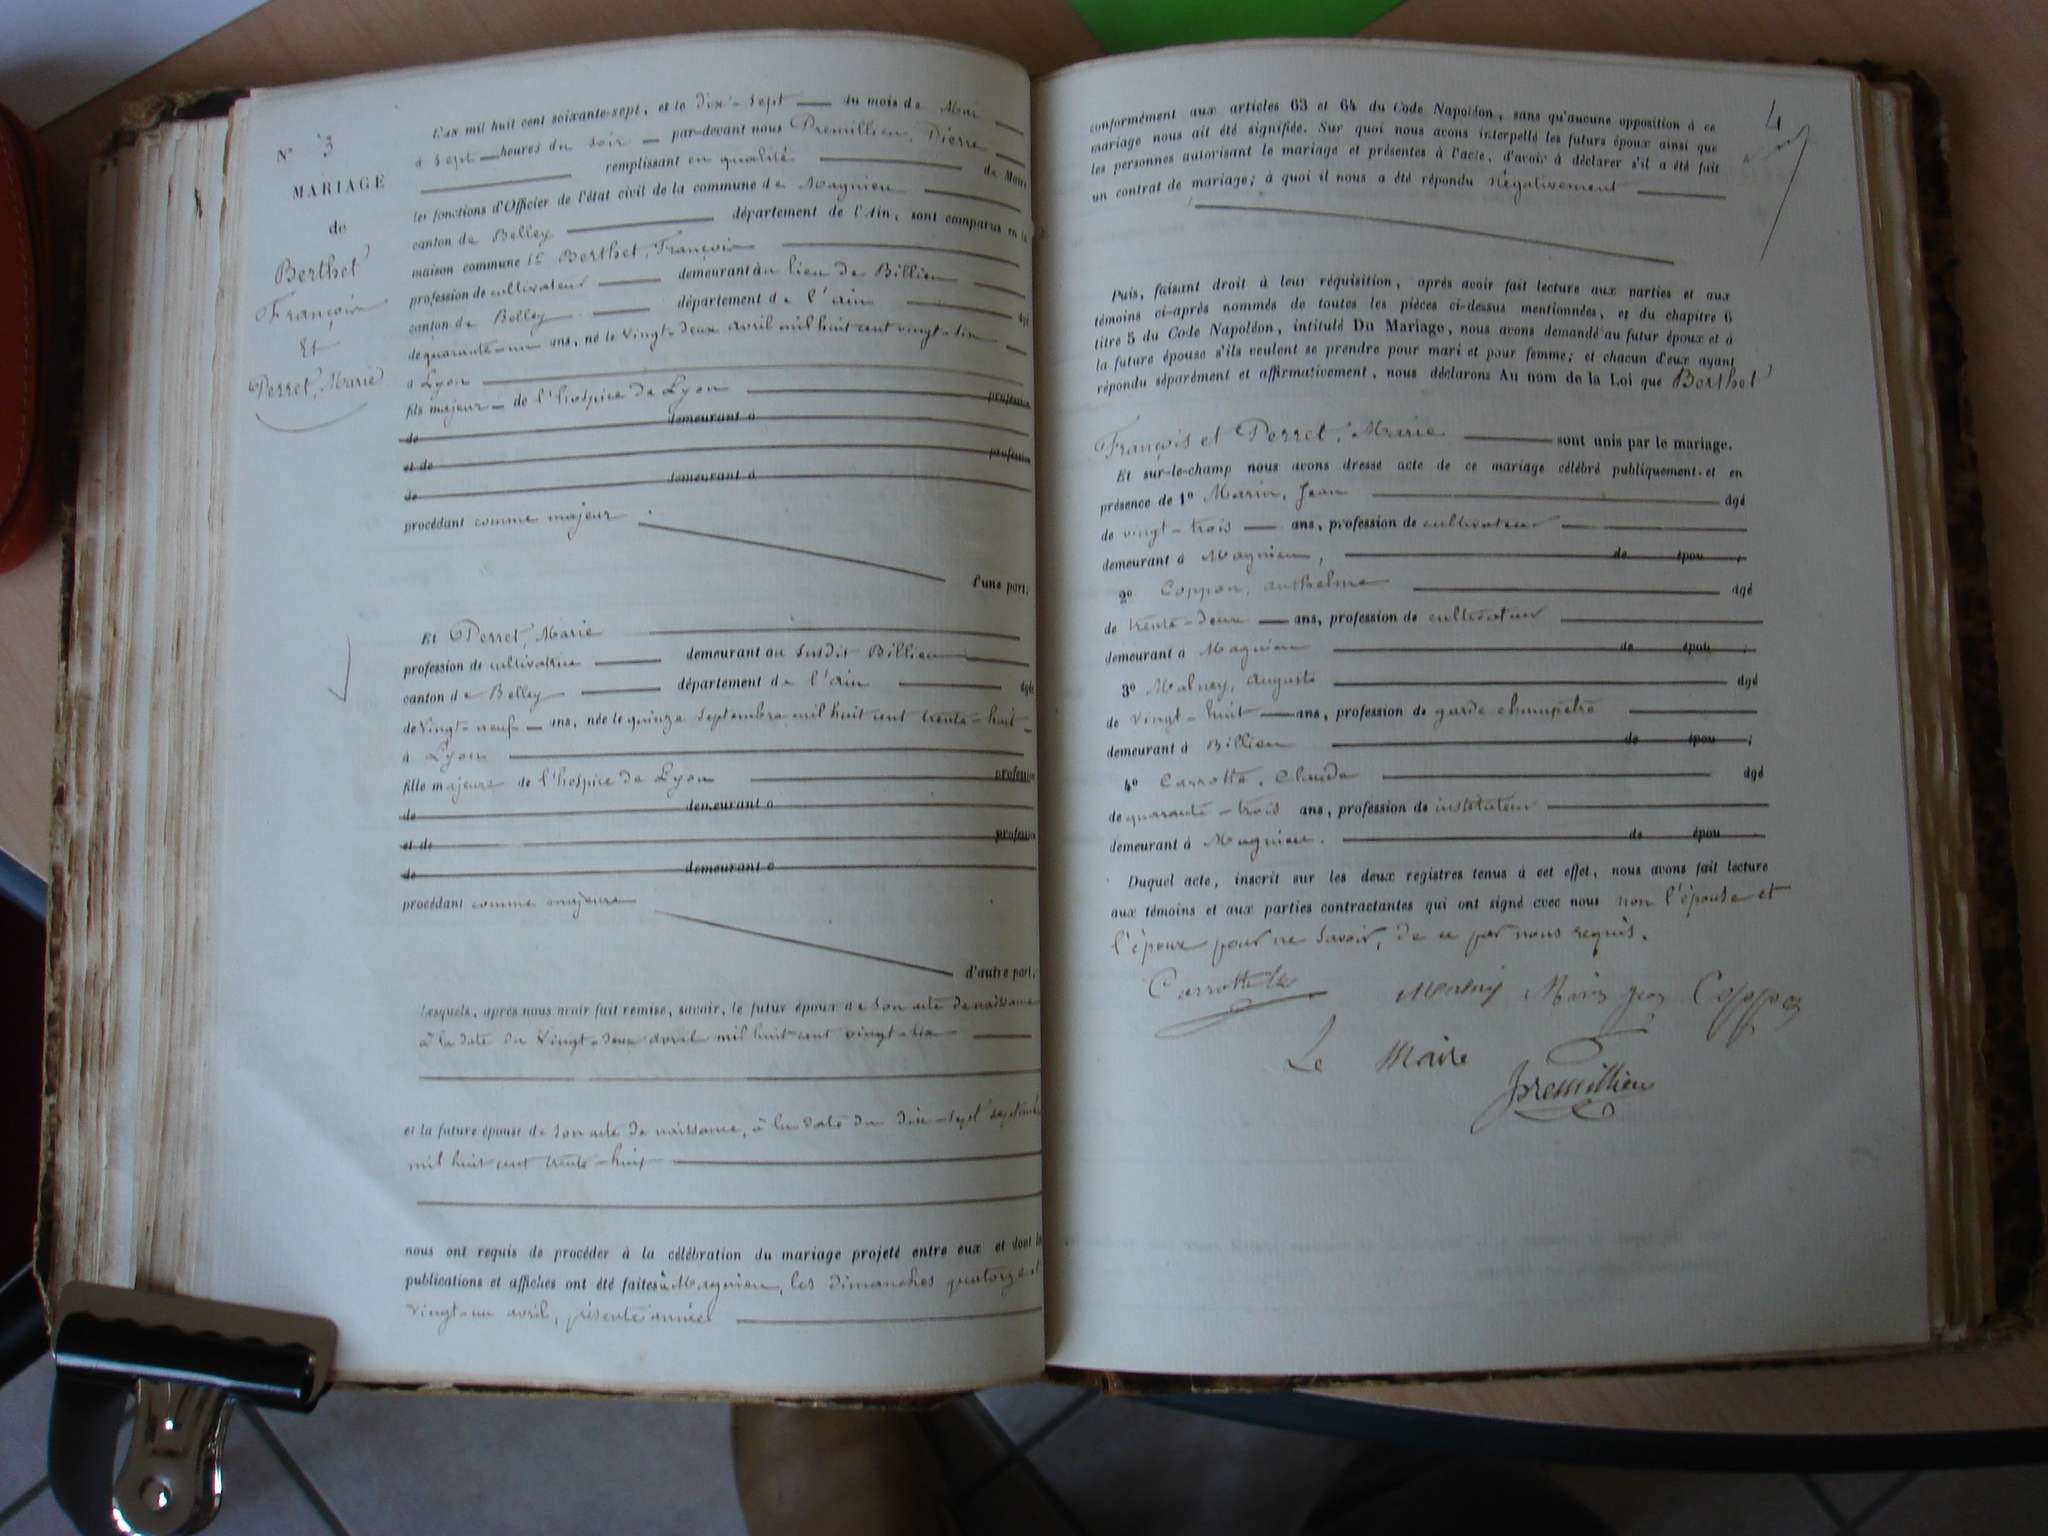 N° 3
MARIAGE
de
Berthet
François
Et
Perret, Marie
L'an mil huit cent soixante-sept, et le dix-sept du mois de Mai
à sept heures du soir par-devant nous Premillieu, Pierre
remplissant en qualité de Maire
les fonctions d'Officier de l'état civil de la commune de Magnieu
canton de Belley département de l'Ain, sont comparus en la
maison commune 1° Berthet, François
profession de cultivateur demeurant au lieu de Billieu
canton de Belley département de l'ain âgé
de quarante-un ans, né le vingt-deux avril mil huit cent vingt-six
à Lyon
fils majeur de l'hospice de Lyon profession
de demeurant à
et de profession
de demeurant à
procédant comme majeur
d'une part.
Et Perret, Marie
profession de cultivatrice demeurant au susdit Billieu
canton de Belley département de l'ain âgée
de vingt-neuf ans, née le quinze septembre mil huit cent trente-huit
à Lyon
fille majeure de l'hospice de Lyon profession
de demeurant à
et de profession
de demeurant à
procédant comme majeure
d'autre part.
Lesquels, après nous avoir fait remise, savoir, le futur époux de son acte de naissance
à la date du vingt-deux avril mil huit-cent vingt-six
et la future épouse de son acte de naissance, à la date du dix-sept septembre
mil huit cent trente-huit
nous ont requis de procéder à la célébration du mariage projeté entre eux et dont les
publications et affiches ont été faites à Magnieu, les dimanches quatorze et
vingt-un avril, présente année
4
conformément aux articles 63 et 64 du Code Napoléon, sans qu'aucune opposition à ce
mariage nous ait été signifiée. Sur quoi nous avons interpellé les futurs époux ainsi que
les personnes autorisant le mariage et présentes à l'acte, d'avoir à déclarer s'il a été fait
un contrat de mariage; à quoi il nous a été répondu négativement
Puis, faisant droit à leur réquisition, après avoir fait lecture aux parties et aux
témoins ci-après nommés de toutes les pièces ci-dessus mentionnées, et du chapitre 6
titre 5 du Code Napoléon, intitulé Du Mariage, nous avons demandé au futur époux et à
la future épouse s'ils veulent se prendre pour mari et pour femme; et chacun d'eux ayant
répondu séparément et affirmativement, nous déclarons Au nom de la Loi que Berthet
François et Perret, Marie sont unis par le mariage.
Et sur-le-champ nous avons dressé acte de ce mariage célébré publiquement et en
présence de 1° Marin, Jean âgé
de vingt-trois ans, profession de cultivateur
demeurant à Magnieu, de épou ;
2° Coppon, anthelme âgé
de trente-deux ans, profession de cultivateur
demeurant à Magnieu de épou ;
3° Malney, auguste âgé
de vingt-huit ans, profession de garde champêtre
demeurant à Billieu de épou ;
4° Carrotte, Claude âgé
de quarante-trois ans, profession de instituteur
demeurant à Magnieu. de épou
Duquel acte, inscrit sur les deux registres tenus à cet effet, nous avons fait lecture
aux témoins et aux parties contractantes qui ont signé avec nous non l'épouse et
l'époux pour ne savoir, de ce par nous requis.
Carrotte Malney Marin Jean Coppon
Le Maire
Premillieu